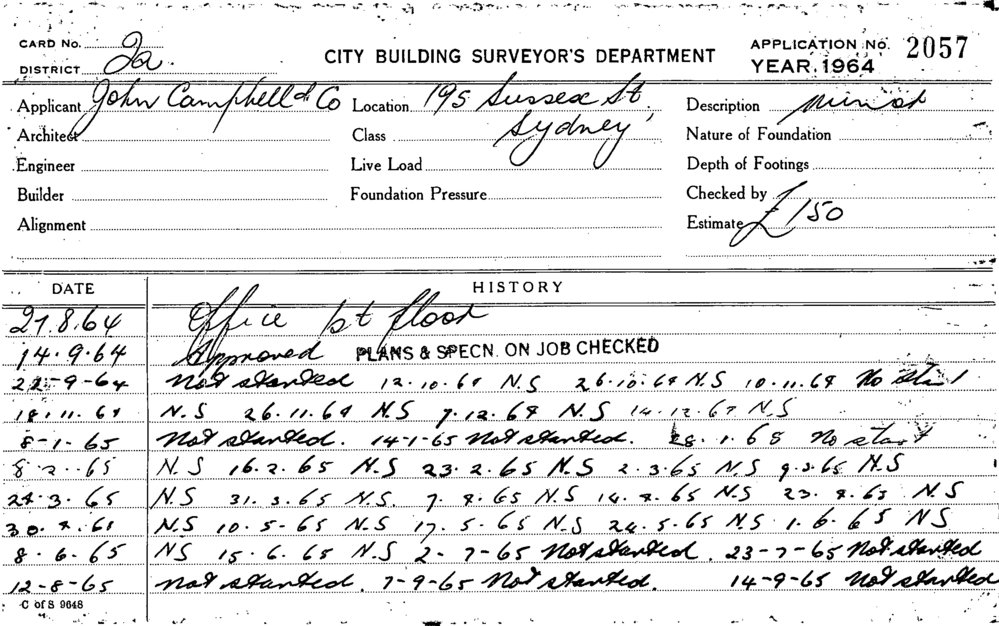 CARD No.
DISTRICT 2a
CITY BUILDING SURVEYOR'S DEPARTMENT
APPLICATION No. 2057
YEAR, 1964
Applicant John Campbell & Co Location 195 Sussex St, Description
Architect Class Sydney Nature of Foundation
Engineer Live Load Depth of Footings
Builder Foundation Pressure Checked by
Alignment Estimate £150
DATE HISTORY
27.8.64 Office 1st floor
14.9.64 Approved PLANS & SPECN. ON JOB CHECKED
22-9-64 Not started 12.10.64 N.S 26.10.64 N.S 10.11.64 No start
18.11.64 N.S 26.11.64 N.S 7.12.64 N.S 14.12.64 N.S
8-1-65 Not started. 14-1-65 Not started. 28.1.65 No start
8.2.65 N.S 16.2.65 N.S 23.2.65 N.S 2.3.65 N.S 9.3.65 N.S
24.3.65 N.S 31.3.65 N.S. 7.4.65 N.S 14.4.65 N.S 23.4.65 N.S
30.4.65 N.S 10.5-65 N.S 17.5.65 N.S 24.5.65 N.S 1.6.65 N.S
8.6.65 NS 15.6.65 N.S 2-7-65 Not started. 23-7-65 Not started
12-8-65 Not started. 7-9-65 Not started. 14-9-65 Not started
C of S 9648